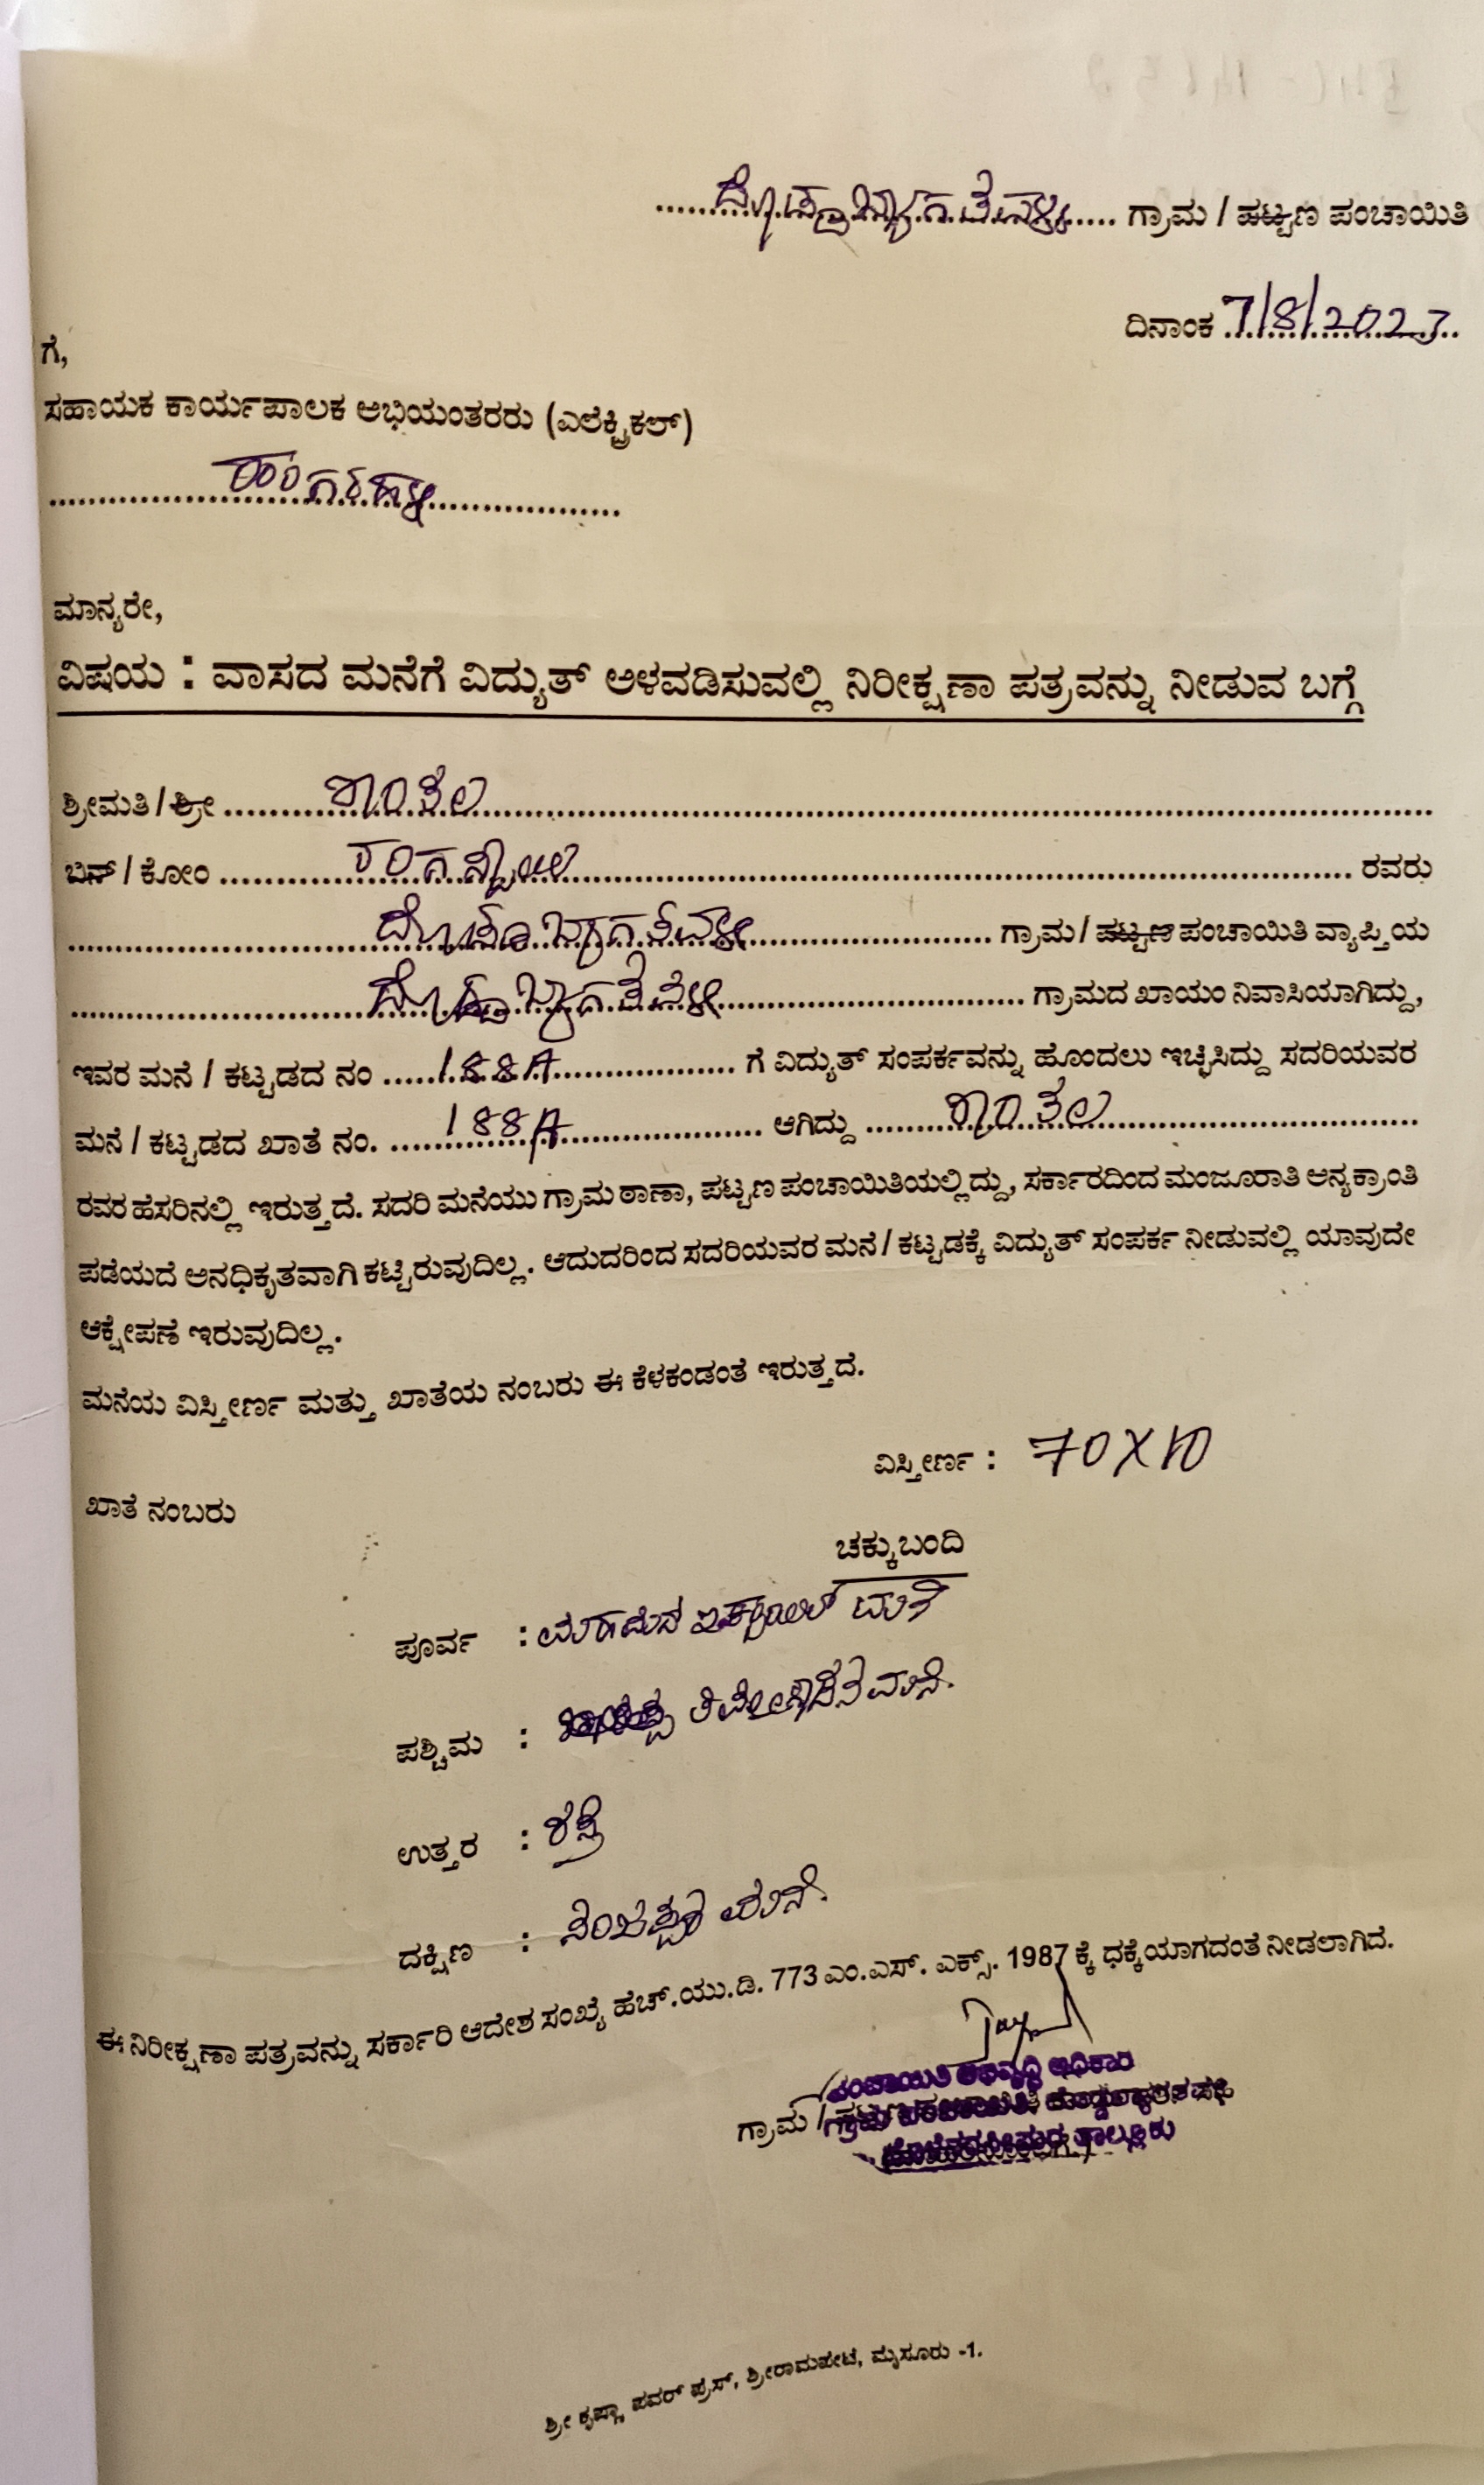 ದೊಡ್ಡಬ್ಯಾಗತವಳ್ಳಿ ಗ್ರಾಮ / ಪಟ್ಟಣ ಪಂಚಾಯಿತಿ
ದಿನಾಂಕ 7/8/2023
ಗೆ,
ಸಹಾಯಕ ಕಾರ್ಯಪಾಲಕ ಅಭಿಯಂತರರು (ಎಲೆಕ್ಟ್ರಿಕಲ್)
ಮಾನ್ಯರೇ,
ವಿಷಯ : ವಾಸದ ಮನೆಗೆ ವಿದ್ಯುತ್ ಅಳವಡಿಸುವಲ್ಲಿ ನಿರೀಕ್ಷಣಾ ಪತ್ರವನ್ನು ನೀಡುವ ಬಗ್ಗೆ
ಶ್ರೀಮತಿ / ಶ್ರೀ ಶಾಂತಲ
ಬಿನ್ / ಕೋಂ ರಂಗಸ್ವಾಮಿ ರವರು
ದೊಡ್ಡಬ್ಯಾಗತವಳ್ಳಿ ಗ್ರಾಮ / ಪಟ್ಟಣ ಪಂಚಾಯಿತಿ ವ್ಯಾಪ್ತಿಯ
ದೊಡ್ಡಬ್ಯಾಗತವಳ್ಳಿ ಗ್ರಾಮದ ಖಾಯಂ ನಿವಾಸಿಯಾಗಿದ್ದು,
ಇವರ ಮನೆ / ಕಟ್ಟಡದ ನಂ 188A ಗೆ ವಿದ್ಯುತ್ ಸಂಪರ್ಕವನ್ನು ಹೊಂದಲು ಇಚ್ಛಿಸಿದ್ದು ಸದರಿಯವರ
ಮನೆ / ಕಟ್ಟಡದ ಖಾತೆ ನಂ. 188A ಆಗಿದ್ದು ಶಾಂತಲ
ರವರ ಹೆಸರಿನಲ್ಲಿ ಇರುತ್ತದೆ. ಸದರಿ ಮನೆಯು ಗ್ರಾಮ ಠಾಣಾ, ಪಟ್ಟಣ ಪಂಚಾಯಿತಿಯಲ್ಲಿದ್ದು, ಸರ್ಕಾರದಿಂದ ಮಂಜೂರಾತಿ ಅನ್ಯಕ್ರಾಂತಿ
ಪಡೆಯದೆ ಅನಧಿಕೃತವಾಗಿ ಕಟ್ಟಿರುವುದಿಲ್ಲ. ಆದುದರಿಂದ ಸದರಿಯವರ ಮನೆ / ಕಟ್ಟಡಕ್ಕೆ ವಿದ್ಯುತ್ ಸಂಪರ್ಕ ನೀಡುವಲ್ಲಿ ಯಾವುದೇ
ಆಕ್ಷೇಪಣೆ ಇರುವುದಿಲ್ಲ.
ಮನೆಯ ವಿಸ್ತೀರ್ಣ ಮತ್ತು ಖಾತೆಯ ನಂಬರು ಈ ಕೆಳಕಂಡಂತೆ ಇರುತ್ತದೆ.
ವಿಸ್ತೀರ್ಣ : 70X10
ಖಾತೆ ನಂಬರು
ಚಕ್ಕುಬಂದಿ
ಪೂರ್ವ : ಮನೆ
ಪಶ್ಚಿಮ : ಮನೆ.
ಉತ್ತರ : ರಸ್ತೆ
ದಕ್ಷಿಣ : ಮನೆ.
ಈ ನಿರೀಕ್ಷಣಾ ಪತ್ರವನ್ನು ಸರ್ಕಾರಿ ಆದೇಶ ಸಂಖ್ಯೆ ಹೆಚ್.ಯು.ಡಿ. 773 ಎಂ.ಎಸ್. ಎಕ್ಸ್. 1987 ಕ್ಕೆ ಧಕ್ಕೆಯಾಗದಂತೆ ನೀಡಲಾಗಿದೆ.
ಪಂಚಾಯಿತಿ ಅಭಿವೃದ್ಧಿ ಅಧಿಕಾರಿ
ಗ್ರಾಮ /
ತಾಲ್ಲೂಕು
ಶ್ರೀ ಕೃಷ್ಣಾ ಪವರ್ ಪ್ರೆಸ್, ಶ್ರೀರಾಮಪೇಟೆ, ಮೈಸೂರು -1.